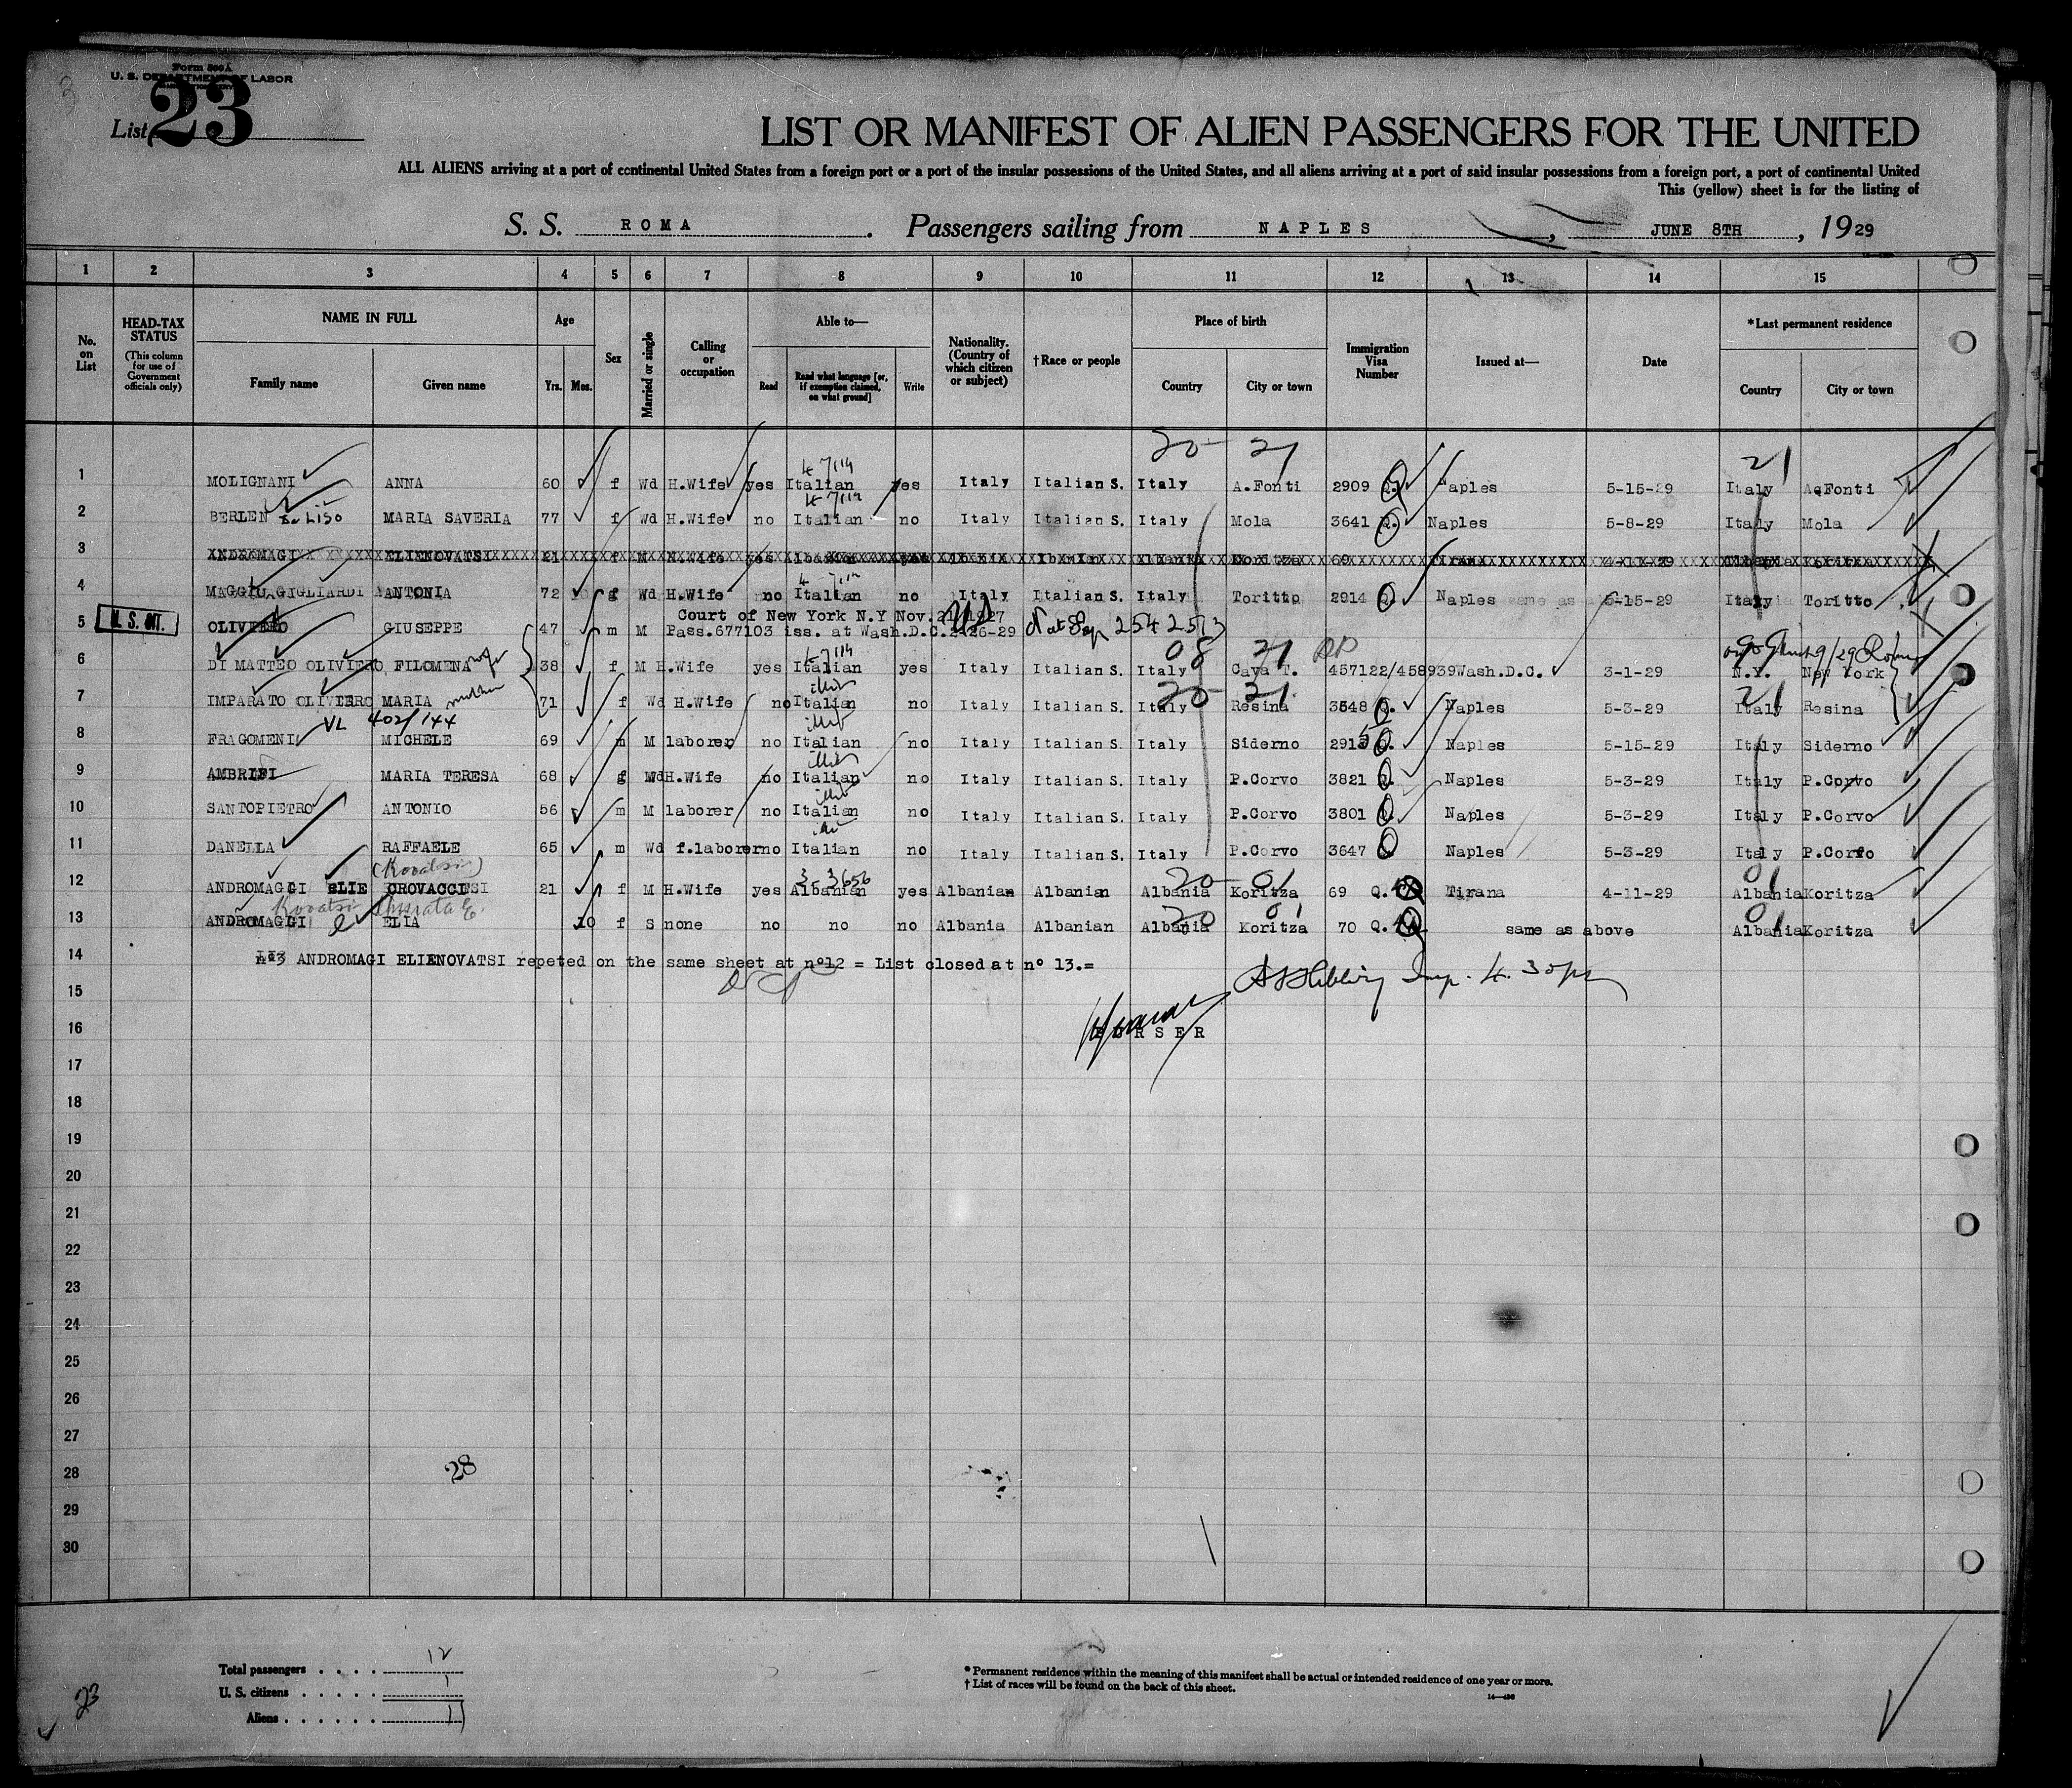 3
Form 500 A
U. S. DEPARTMENT OF LABOR
List 23
LIST OR MANIFEST OF ALIEN PASSENGERS FOR THE UNITED
ALL ALIENS arriving at a port of continental United States from a foreign port or a port of the insular possessions of the United States, and all aliens arriving at a port of said insular possessions from a foreign port, a port of continental United
This (yellow) sheet is for the listing of
S. S. ROMA . Passengers sailing from NAPLES , JUNE 8TH , 1929
1 2 3 4 5 6 7 8 9 10 11 12 13 14 15
No. on List
HEAD-TAX STATUS (This column for use of Government officials only)
NAME IN FULL
Family name
Given name
Age
Yrs. Mos.
Sex
Married or single
Calling or occupation
Able to—
Read
Read what language [or, if exemption claimed, on what ground]
Write
Nationality. (Country of which citizen or subject)
†Race or people
Place of birth
Country
City or town
Immigration Visa Number
Issued at—
Date
*Last permanent residence
Country
City or town
20 21 21
1 MOLIGNANI ANNA 60 f Wd H.Wife yes Italian yes Italy Italian S. Italy A.Fonti 2909 Q. Naples 5-15-29 Italy A.Fonti
2 BERLEN Liso MARIA SAVERIA 77 f Wd H.Wife no Italian no Italy Italian S. Italy Mola 3641 Q. Naples 5-8-29 Italy Mola
3 ANDROMAGI ELIENOVATSI 21 f M H.Wife yes Albanian yes Koritza 69 Tirana 4-11-29 Albania Koritza
4 MAGGIU GIGLIARDI ANTONIA 72 f Wd H.Wife no Italian no Italy Italian S. Italy Toritto 2914 Q. Naples 5-15-29 Italy Toritto
Court of New York N.Y Nov.21 1927
5 OLIVIERO GIUSEPPE 47 m M Pass.677103 iss. at Wash.D.C.2-26-29 US
6 DI MATTEO OLIVIERO, FILOMENA wife 38 f M H.Wife yes Italian yes Italy Italian S. Italy Cava T. 457122/458939 Wash.D.C. 3-1-29 N.Y. New York
08 21
7 IMPARATO OLIVIERO MARIA mother 71 f Wd H.Wife no Italian no Italy Italian S. Italy Resina 3548 Q. Naples 5-3-29 Italy Resina
20 21 21
VL 402/144
8 FRAGOMENI MICHELE 69 m M laborer no Italian no Italy Italian S. Italy Siderno 2915 Q. Naples 5-15-29 Italy Siderno
9 AMBRIFI MARIA TERESA 68 f Wd H.Wife no Italian no Italy Italian S. Italy P.Corvo 3821 Q. Naples 5-3-29 Italy P.Corvo
10 SANTOPIETRO ANTONIO 56 m M laborer no Italian no Italy Italian S. Italy P.Corvo 3801 Q. Naples 5-3-29 Italy P.Corvo
11 DANELLA RAFFAELE 65 m Wd f.laborer no Italian no Italy Italian S. Italy P.Corvo 3647 Q Naples 5-3-29 Italy P.Corvo
3-3656 20 01 01
12 ANDROMAGGI ELIE CROVACCI 21 f M H.Wife yes Albanian yes Albanian Albanian Albania Koritza 69 Q. Tirana 4-11-29 Albania Koritza
Kovatsi
20 01 01
13 ANDROMAGGI ELIA 10 f S none no no no Albania Albanian Albania Koritza 70 Q. same as above Albania Koritza
14 n°3 ANDROMAGI ELIENOVATSI repeted on the same sheet at n°12 = List closed at n° 13.=
15 Insp. 4.30 pm
16 PURSER
17
18
19
20
21
22
23
24
25
26
27
28 28
29
30
Total passengers . . . . 12
U. S. citizens . . . . . 1
Aliens . . . . . . 11
23
* Permanent residence within the meaning of this manifest shall be actual or intended residence of one year or more.
† List of races will be found on the back of this sheet.